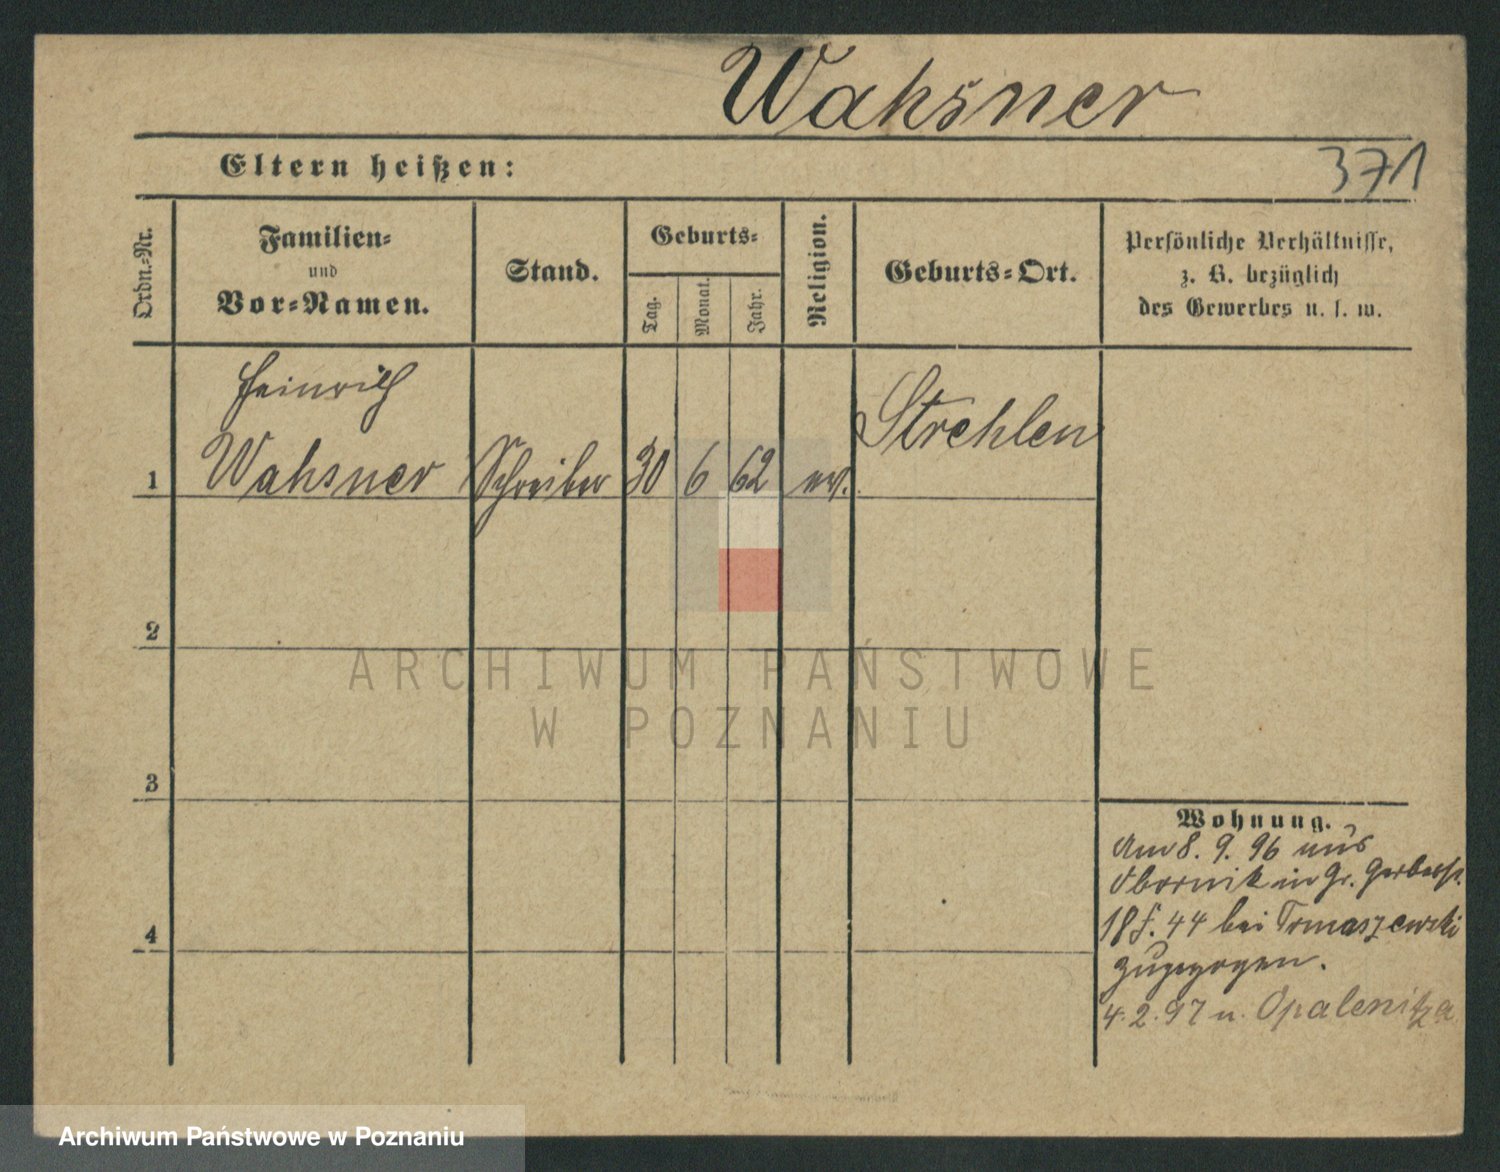 Wahsner
Eltern heißen:
371
Ordn.-Nr.
Familien-
und
Vor-Namen.
Stand.
Geburts-
Tag.
Monat.
Jahr.
Religion.
Geburts-Ort.
Persönliche Verhältnisse,
z. B. bezüglich
des Gewerbes u. s. w.
Heinrich
1 Wahsner Schreiber 30 6 62 ev. Strehlen
2
ARCHIWUM PAŃSTWOWE
W POZNANIU
3
Wohnung.
Am 8. 9. 96 aus
Obornik in Gr. Gerberst.
18 f. 44 bei Tomaszewski
4
zugezogen.
4. 2. 97 n. Opalenitza
Archiwum Państwowe w Poznaniu